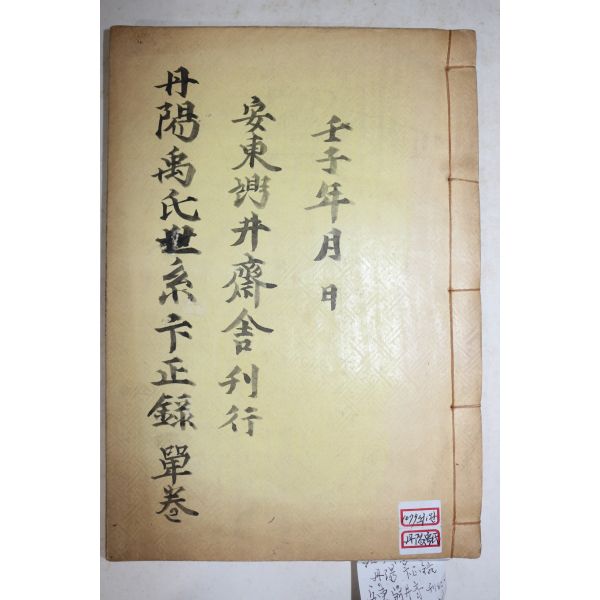 壬子年月日
安東㘭井齋舍刊行
丹陽禹氏世系卞正錄 單卷